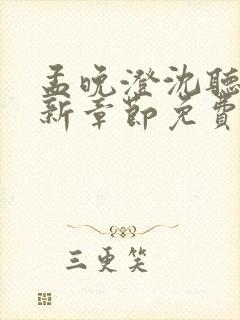 孟晚澄沈聽
新章節免費
三更笑